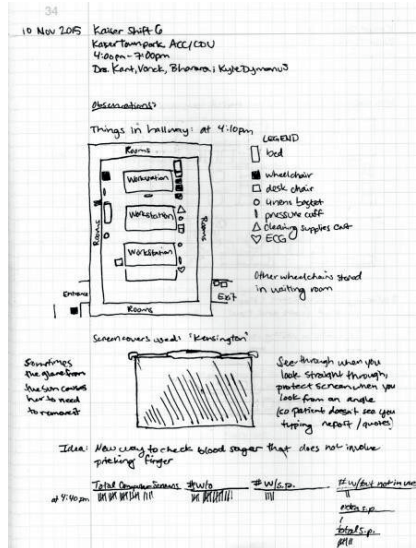 34
10 Nov 2015 Kaiser Shift 6
Kaiser Town park, ACC/CDU
4:00pm - 7:00pm
Drs. Kant, Vonck,
Observations:
Things in hallway: at 4:10pm
Rooms
Rooms
Rooms
Rooms
Workstation
Workstation
Workstation
Entrance
Exit
LEGEND
bed
wheelchair
desk chair
linens basket
pressure cuff
cleaning supplies cart
ECG
Other wheelchairs stored
in waiting room
Screen covers used: "Kensington"
Sometimes
the glare from
the sun causes
her to need
to remove it
See through when you
look straight through,
protect screen when you
look from an angle
(so patient doesn't see you
typing report/quotes)
Idea: New way to check blood sugar that does not involve
pricking finger
Total Computer Screens # w/o # w/ s.p. # w/ but not in use
at 4:40pm
extra s.p.
total s.p.